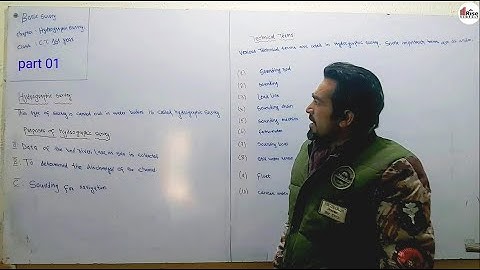 Basic Surveying
Chapter: Hydrographic Surveying
Class: C.T 1st year
part 01
Hydrographic Surveying
This type of surveying is carried out in water bodies is called hydrographic Surveying
Purposes of Hydrographic Surveying
Data of the bed River, Lake, or sea is collected
To determined the discharge of the channel
Sounding for navigation
Technical Terms
Various technical terms are used in hydrographic Surveying. Some important terms are as under.
(1) Sounding rod
(2) Sounding
(3) Lead line
(4) Sounding chain
(5) Sounding machine
(6)
(7) Sounding boat
(8)
(9) Float
(10) Current meter
Rise